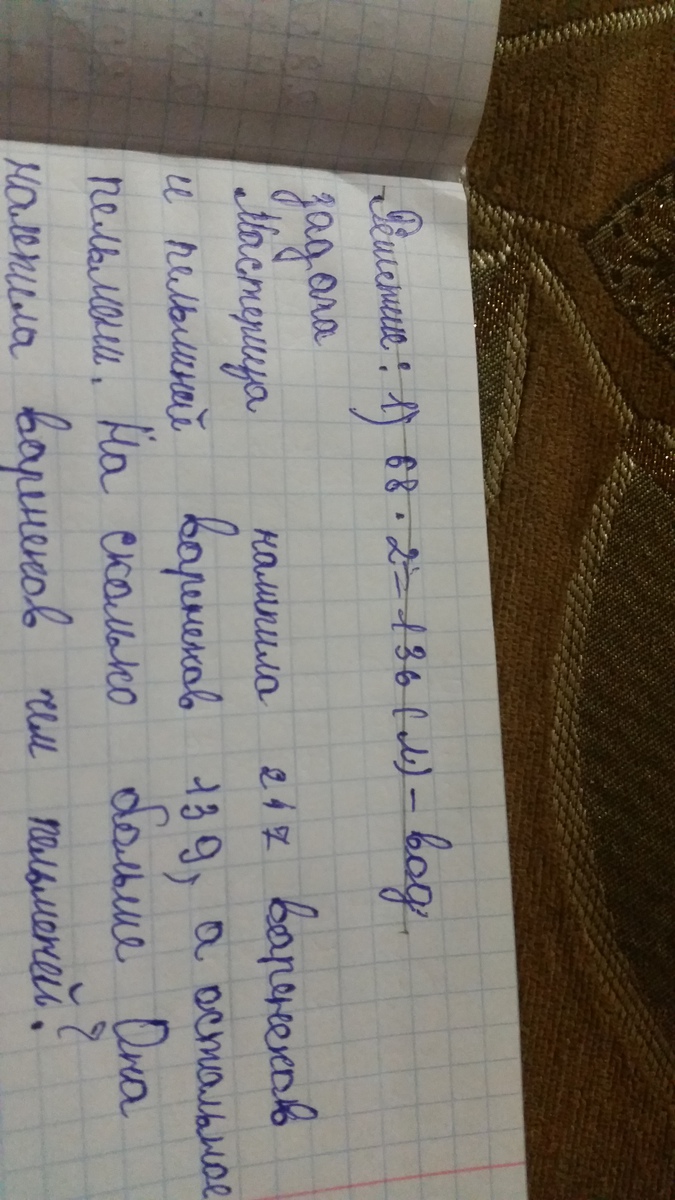 Решение: 1) 68 · 2 = 136 (м) - вод
задача
Мастерица налипила 217 варенеков
и пельминей варенеков 139, а остальное
пельмени. На сколько больше Она
налепила варенеков чем пельменей?